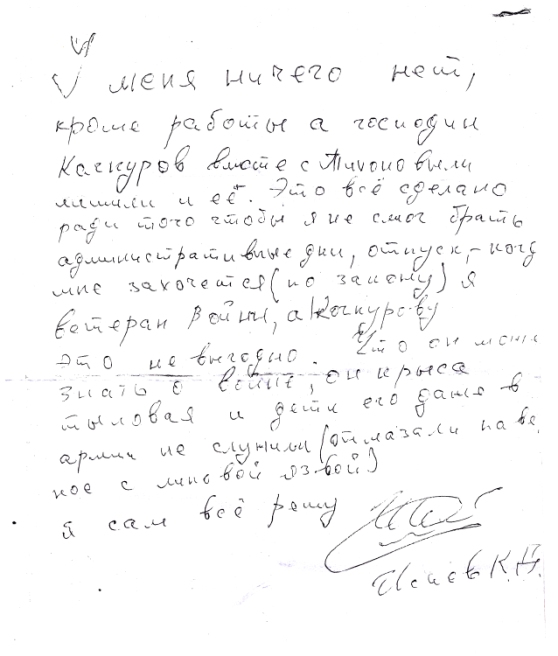 У меня ничего нет,
кроме работы а господин
Качкуров вместе с
лишили и её. Это всё сделано
ради того чтобы я не смог брать
административные дни, отпуск, - когд
мне захочется (по закону) я
ветеран войны, а Качкурову
это не выгодно. Что он може
знать о войне, он крыса
тыловая и дети его даже в
армии не служили (отмазали наве
ное с язвой)
я сам всё решу
К.Н.